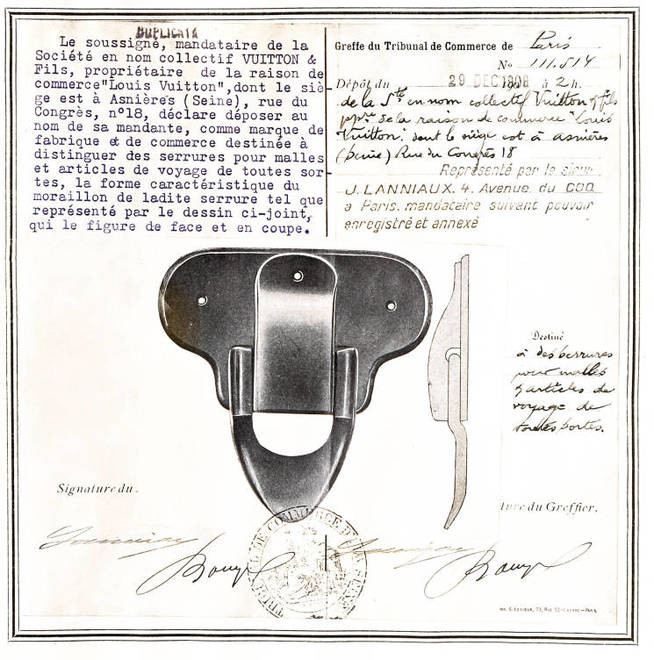 DUPLICATA
Le soussigné, mandataire de la
Société en nom collectif VUITTON &
Fils, propriétaire de la raison de
commerce"Louis Vuitton",dont le siè
ge est à Asnières (Seine), rue du
Congrès, n°18, déclare déposer au
nom de sa mandante, comme marque de
fabrique & de commerce destinée à
distinguer des serrures pour malles
et articles de voyage de toutes sor-
tes, la forme caractéristique du
moraillon de ladite serrure tel que
représenté par le dessin ci-joint,
qui le figure de face et en coupe.
Greffe du Tribunal de Commerce de Paris
No 111.514
Dépôt du 29 DEC 1908 à 2h.
de la Sté en nom collectif Vuitton & fils
ppre de la raison de commerce "Louis
Vuitton", dont le siège est à Asnières
(Seine) Rue du Congrès 18
Représenté par le sieur
J. LANNIAUX. 4, Avenue du COQ
à Paris. mandataire suivant pouvoir
enregistré et annexé
Destiné
à des serrures
pour malles
& articles de
voyage de
toutes sortes.
Signature du.
ture du Greffier.
COMMERCE